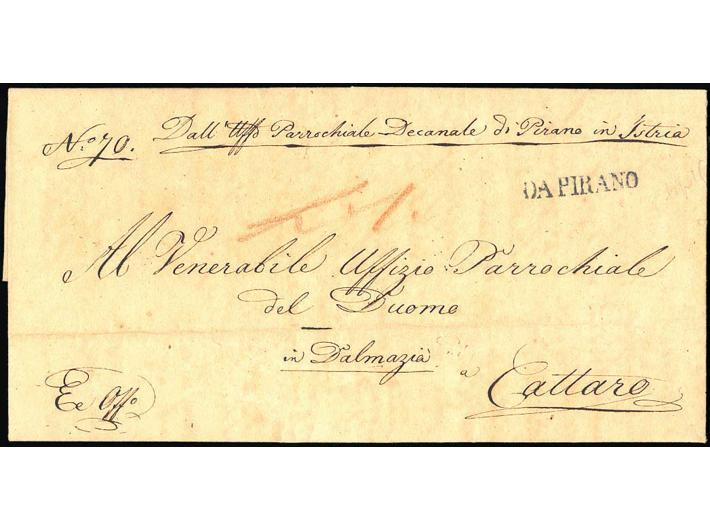 N.o 70. Dall' Uffo Parrochiale Decanale di Pirano in Istria
DA PIRANO
Al Venerabile Uffizio Parrochiale
del Duomo
in Dalmazia a Cattaro
Ex Offo